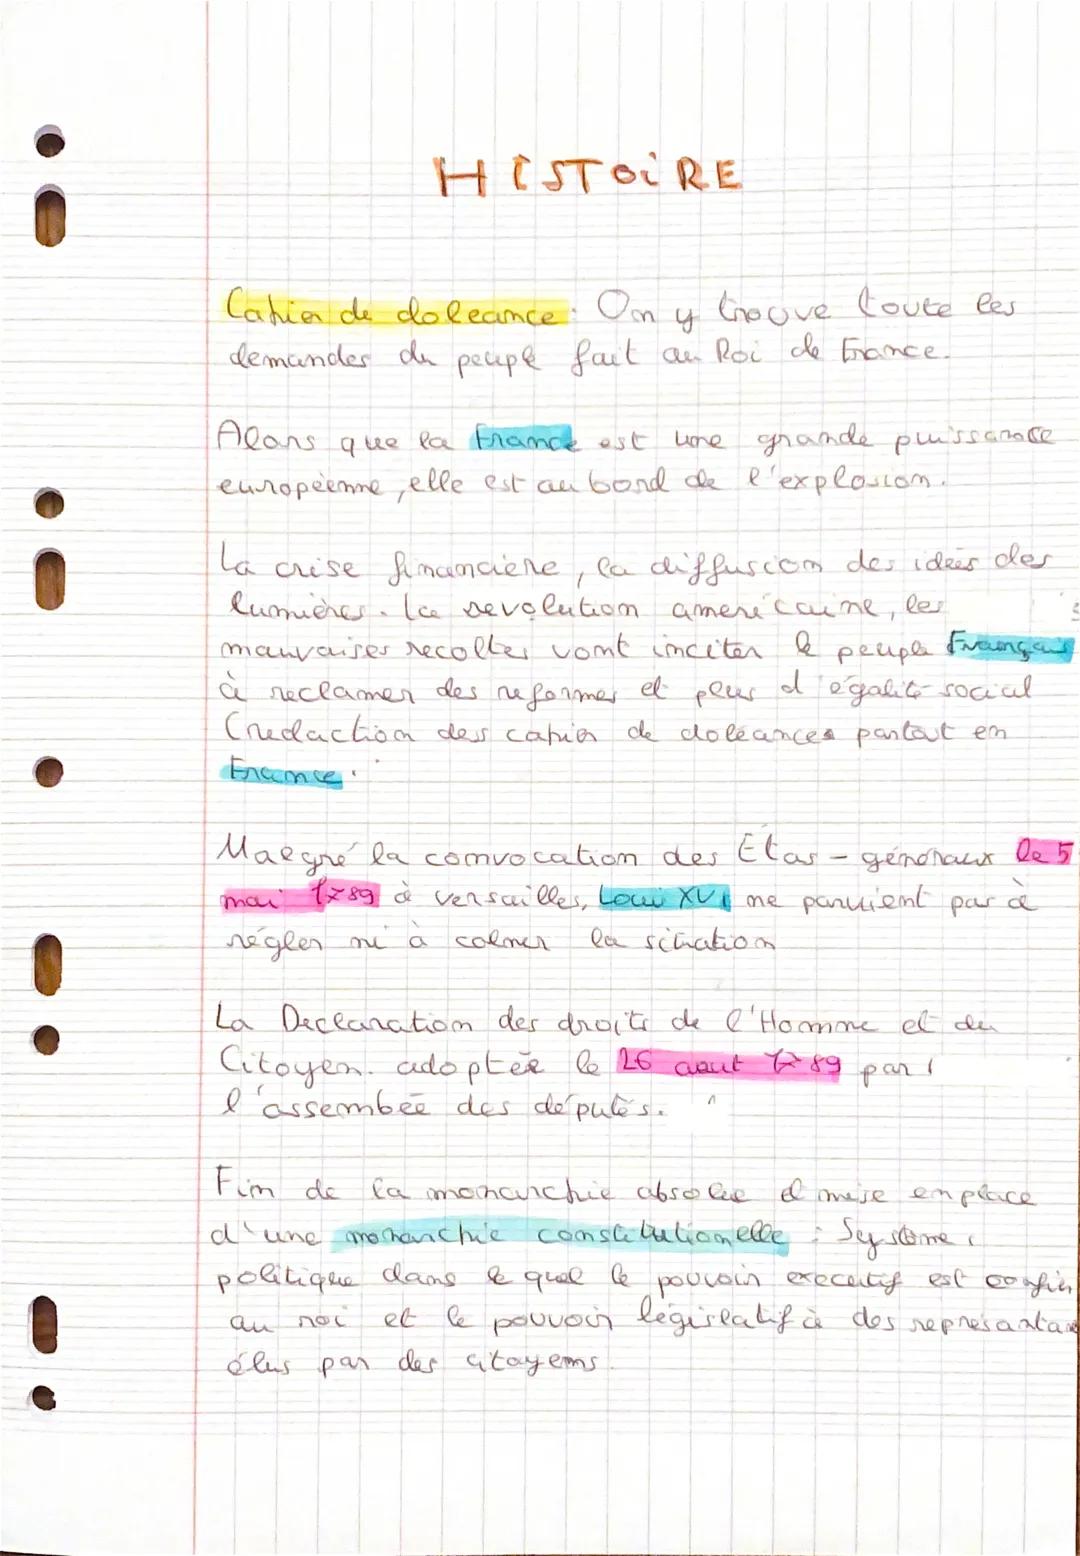 HISTOIRE
Cahier de doleance : On y trouve toute les
demandes du peuple fait au Roi de France.
Alors que la France est une grande puissance
européenne, elle est au bord de l'explosion.
La crise financière, la diffusion des idées des
lumières. La revolution américaine, les
mauvaises recoltes vont inciter le peuple Français
à reclamer des reformes et plus d'égalité social
(redaction des cahier de doléances partout en
France.
Malgré la convocation des Etas-généraux le 5
mai 1789 à versailles, Loui XVI ne parvient pas à
régler ni à calmer la situation
La Declaration des droits de l'Homme et du
Citoyen. adoptée le 26 aout 1789 par
l'assembée des députés.
Fin de la monarchie absolue et mise en place
d'une monarchie constitutionelle : Systeme
politique dans le quel le pouvoir executif est confié
au roi et le pouvoir législatif à des représantan
élus par des citoyens.